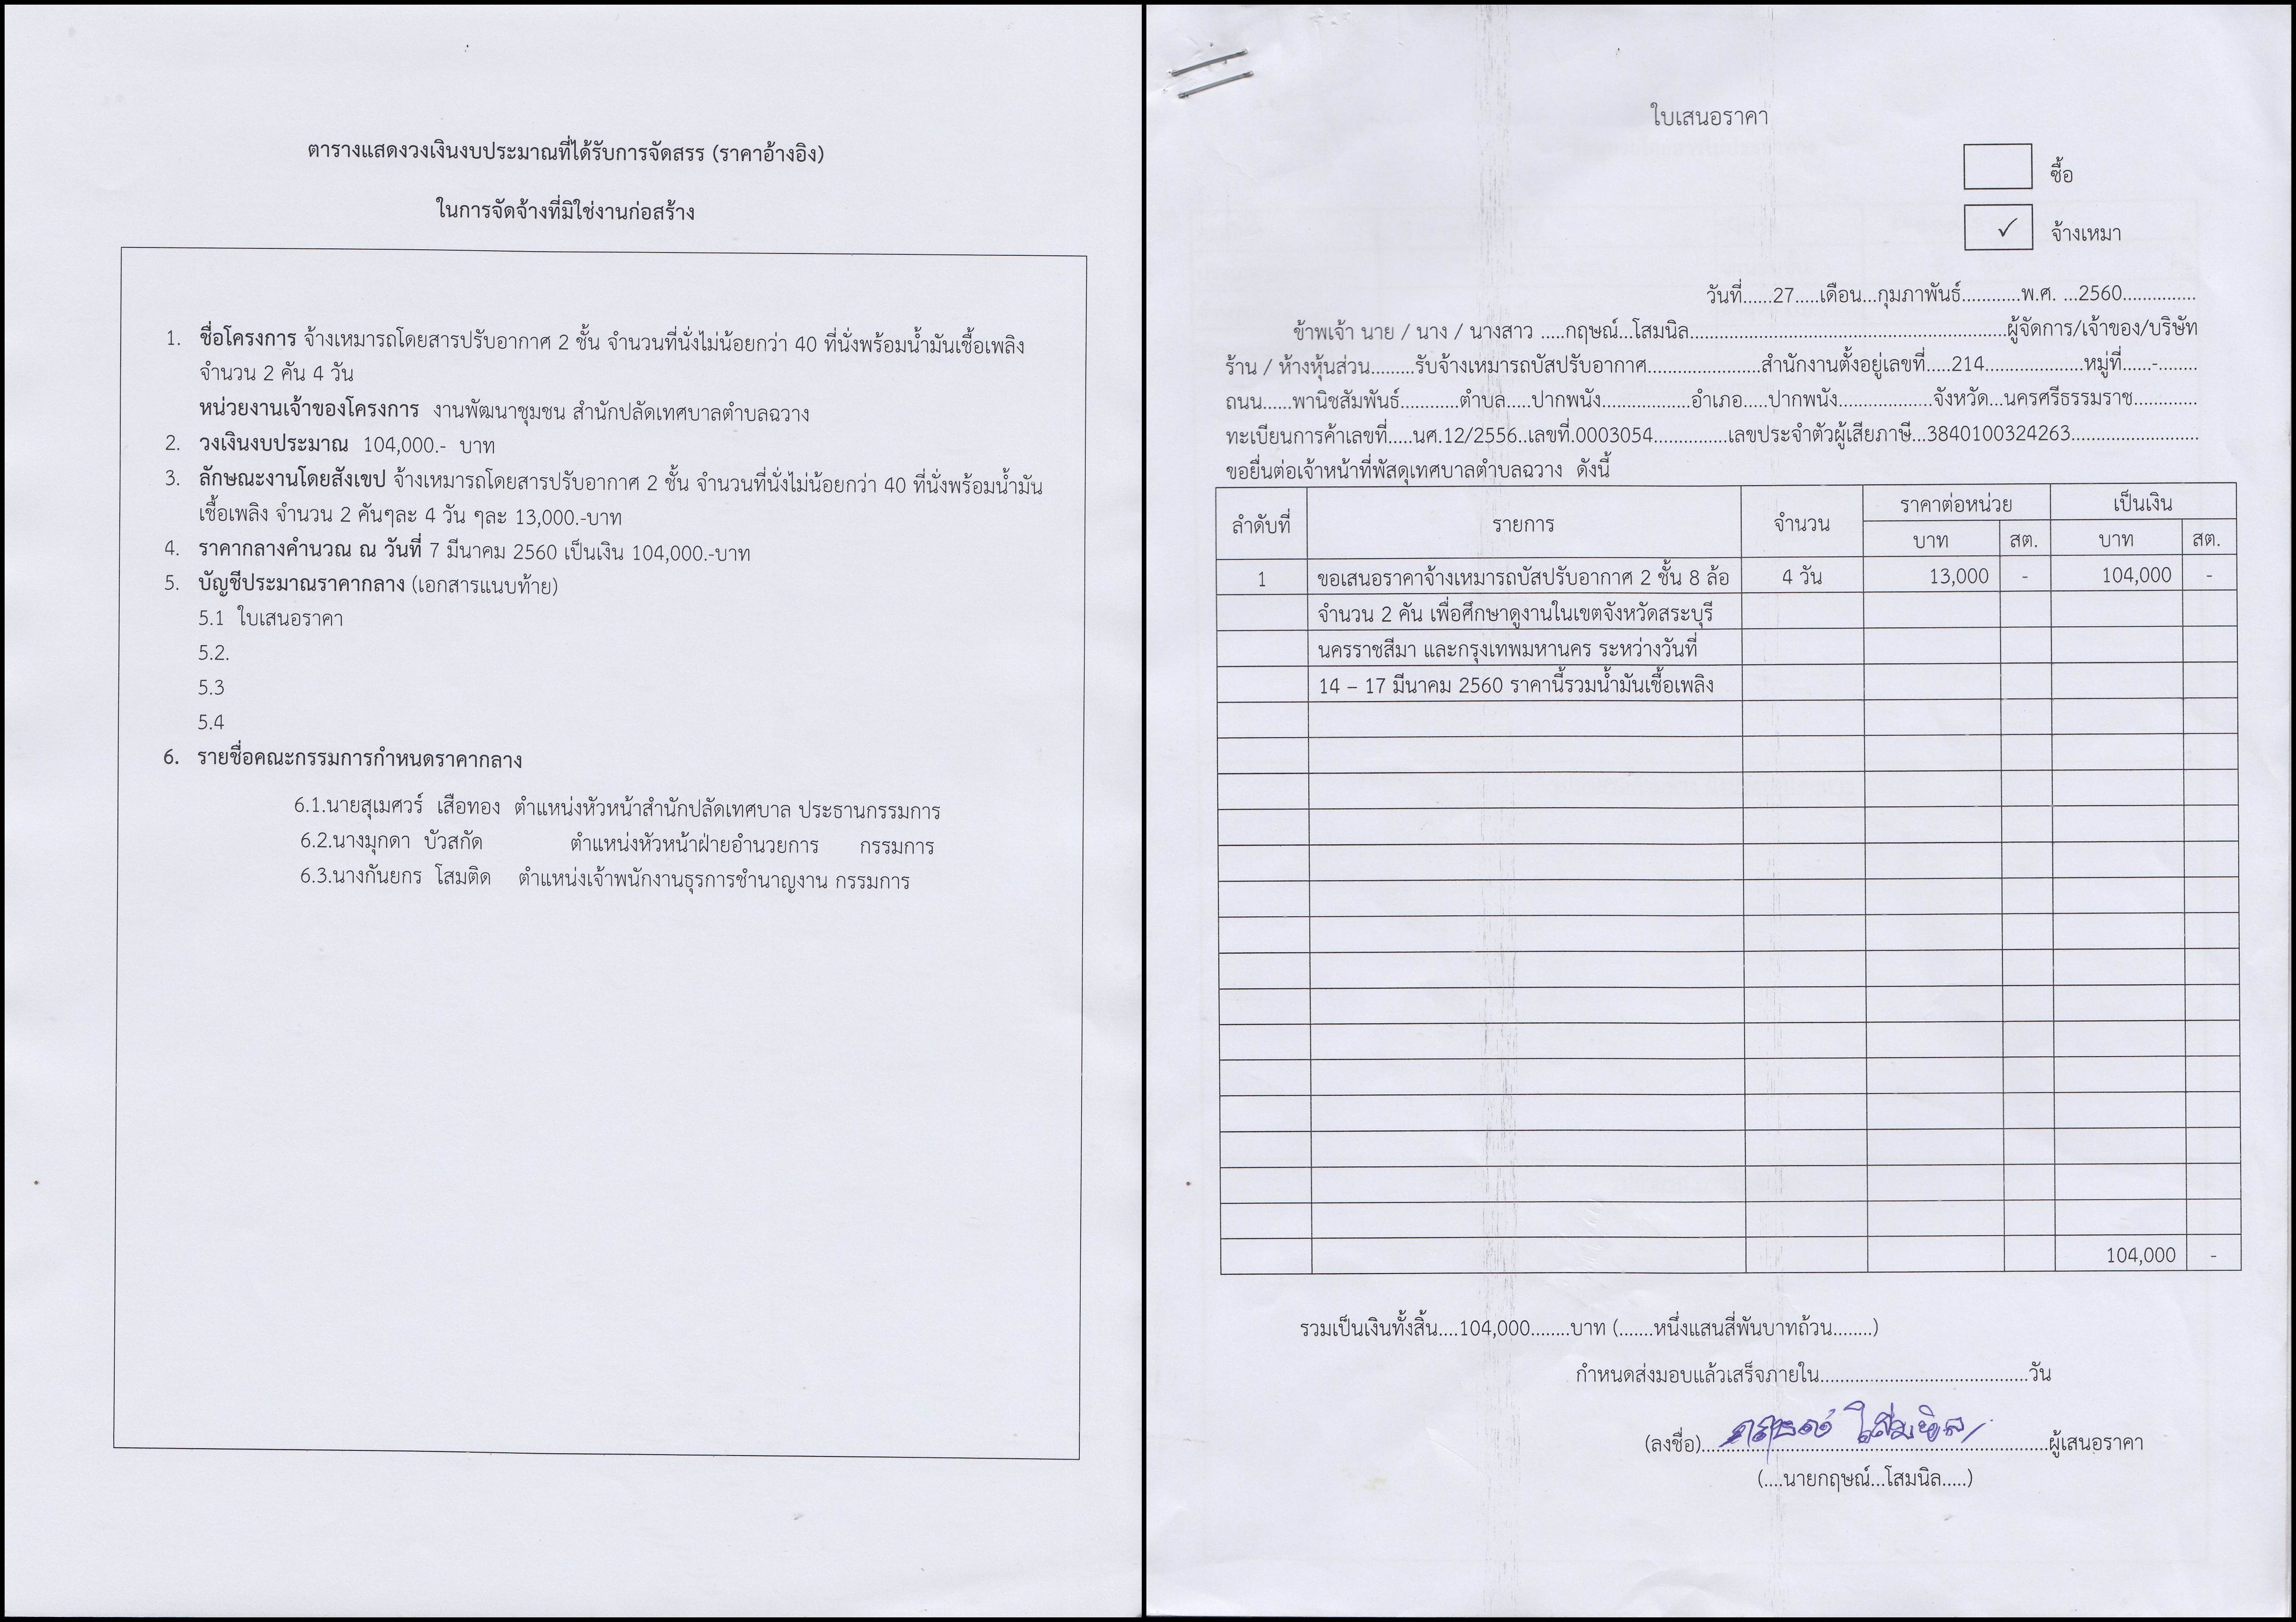 ตารางแสดงวงเงินงบประมาณที่ได้รับการจัดสรร (ราคาอ้างอิง)
ในการจัดจ้างที่มิใช่งานก่อสร้าง
1. ชื่อโครงการ จ้างเหมารถโดยสารปรับอากาศ 2 ชั้น จำนวนที่นั่งไม่น้อยกว่า 40 ที่นั่งพร้อมน้ำมันเชื้อเพลิง
จำนวน 2 คัน 4 วัน
หน่วยงานเจ้าของโครงการ งานพัฒนาชุมชน สำนักปลัดเทศบาลตำบลฉวาง
2. วงเงินงบประมาณ 104,000.- บาท
3. ลักษณะงานโดยสังเขป จ้างเหมารถโดยสารปรับอากาศ 2 ชั้น จำนวนที่นั่งไม่น้อยกว่า 40 ที่นั่งพร้อมน้ำมัน
เชื้อเพลิง จำนวน 2 คันๆละ 4 วัน ๆละ 13,000.-บาท
4. ราคากลางคำนวณ ณ วันที่ 7 มีนาคม 2560 เป็นเงิน 104,000.-บาท
5. บัญชีประมาณราคากลาง (เอกสารแนบท้าย)
5.1 ใบเสนอราคา
5.2.
5.3
5.4
6. รายชื่อคณะกรรมการกำหนดราคากลาง
6.1.นายสุเมศวร์ เสือทอง ตำแหน่งหัวหน้าสำนักปลัดเทศบาล ประธานกรรมการ
6.2.นางมุกดา บัวสกัด ตำแหน่งหัวหน้าฝ่ายอำนวยการ กรรมการ
6.3.นางกันยกร โสมติด ตำแหน่งเจ้าพนักงานธุรการชำนาญงาน กรรมการ
ใบเสนอราคา
ซื้อ
✓ จ้างเหมา
วันที่......27.....เดือน...กุมภาพันธ์............พ.ศ. ...2560...............
ข้าพเจ้า นาย / นาง / นางสาว .....กฤษณ์...โสมนิล................................................................ผู้จัดการ/เจ้าของ/บริษัท
ร้าน / ห้างหุ้นส่วน.........รับจ้างเหมารถบัสปรับอากาศ.......................สำนักงานตั้งอยู่เลขที่.....214....................หมู่ที่......-........
ถนน......พานิชสัมพันธ์............ตำบล.....ปากพนัง..................อำเภอ.....ปากพนัง...................จังหวัด...นครศรีธรรมราช.............
ทะเบียนการค้าเลขที่.....นศ.12/2556..เลขที่.0003054...............เลขประจำตัวผู้เสียภาษี...3840100324263..........................
ขอยื่นต่อเจ้าหน้าที่พัสดุเทศบาลตำบลฉวาง ดังนี้
ลำดับที่ รายการ จำนวน ราคาต่อหน่วย เป็นเงิน
บาท สต. บาท สต.
1 ขอเสนอราคาจ้างเหมารถบัสปรับอากาศ 2 ชั้น 8 ล้อ 4 วัน 13,000 - 104,000 -
จำนวน 2 คัน เพื่อศึกษาดูงานในเขตจังหวัดสระบุรี
นครราชสีมา และกรุงเทพมหานคร ระหว่างวันที่
14 – 17 มีนาคม 2560 ราคานี้รวมน้ำมันเชื้อเพลิง
104,000 -
รวมเป็นเงินทั้งสิ้น....104,000........บาท (.......หนึ่งแสนสี่พันบาทถ้วน........)
กำหนดส่งมอบแล้วเสร็จภายใน..........................................วัน
(ลงชื่อ)...กฤษณ์ โสมนิล...ผู้เสนอราคา
(....นายกฤษณ์...โสมนิล.....)